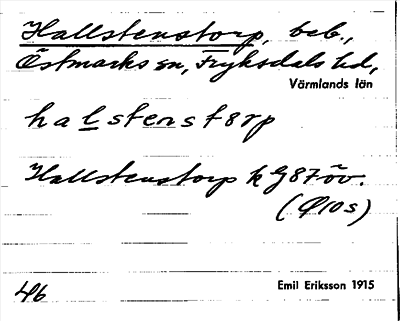 Hallstenstorp, beb.,
Östmarks sn, Fryksdals hd,
Värmlands län
halstenstörp
Hallstenstorp k G87öv.
(Ø10s)
46
Emil Eriksson 1915